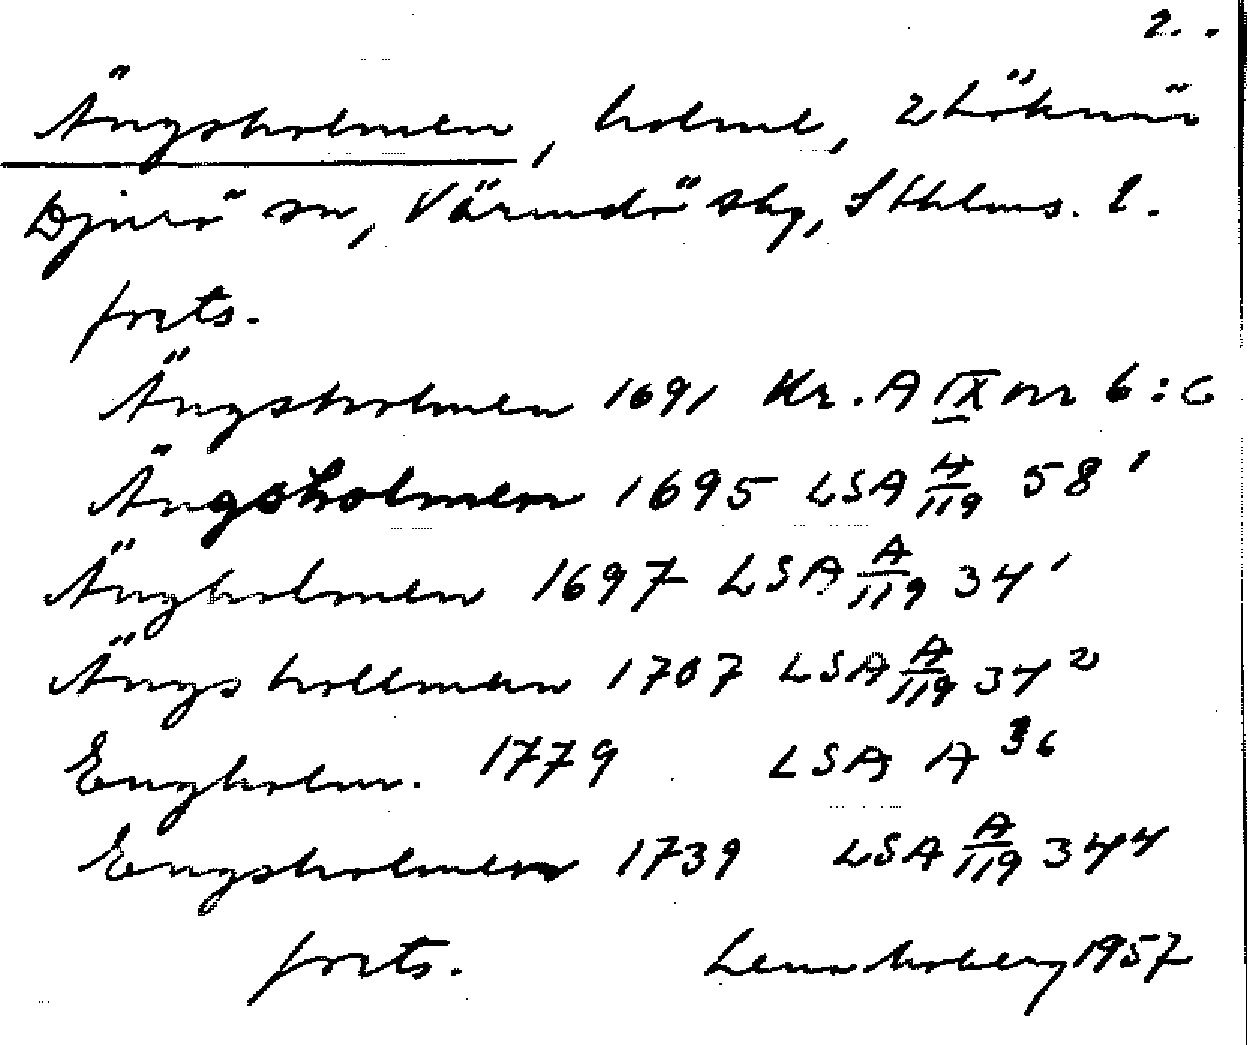 2.
Ängsholmen, holme,
Djurö sn, Värmdö skg, Sthlms. l.
forts.
Ängsholmen 1691 Kr. A IX nr 6:6
Ängsholmen 1695 LSA A/119 58¹
Ängholmen 1697 LSA A/119 34¹
Ängs hollmen 1707 LSA A/119 34²
Engholm. 1779 LSA A 36
Engsholmen 1739 LSA A/119 34⁴
forts. Lena Moberg 1957